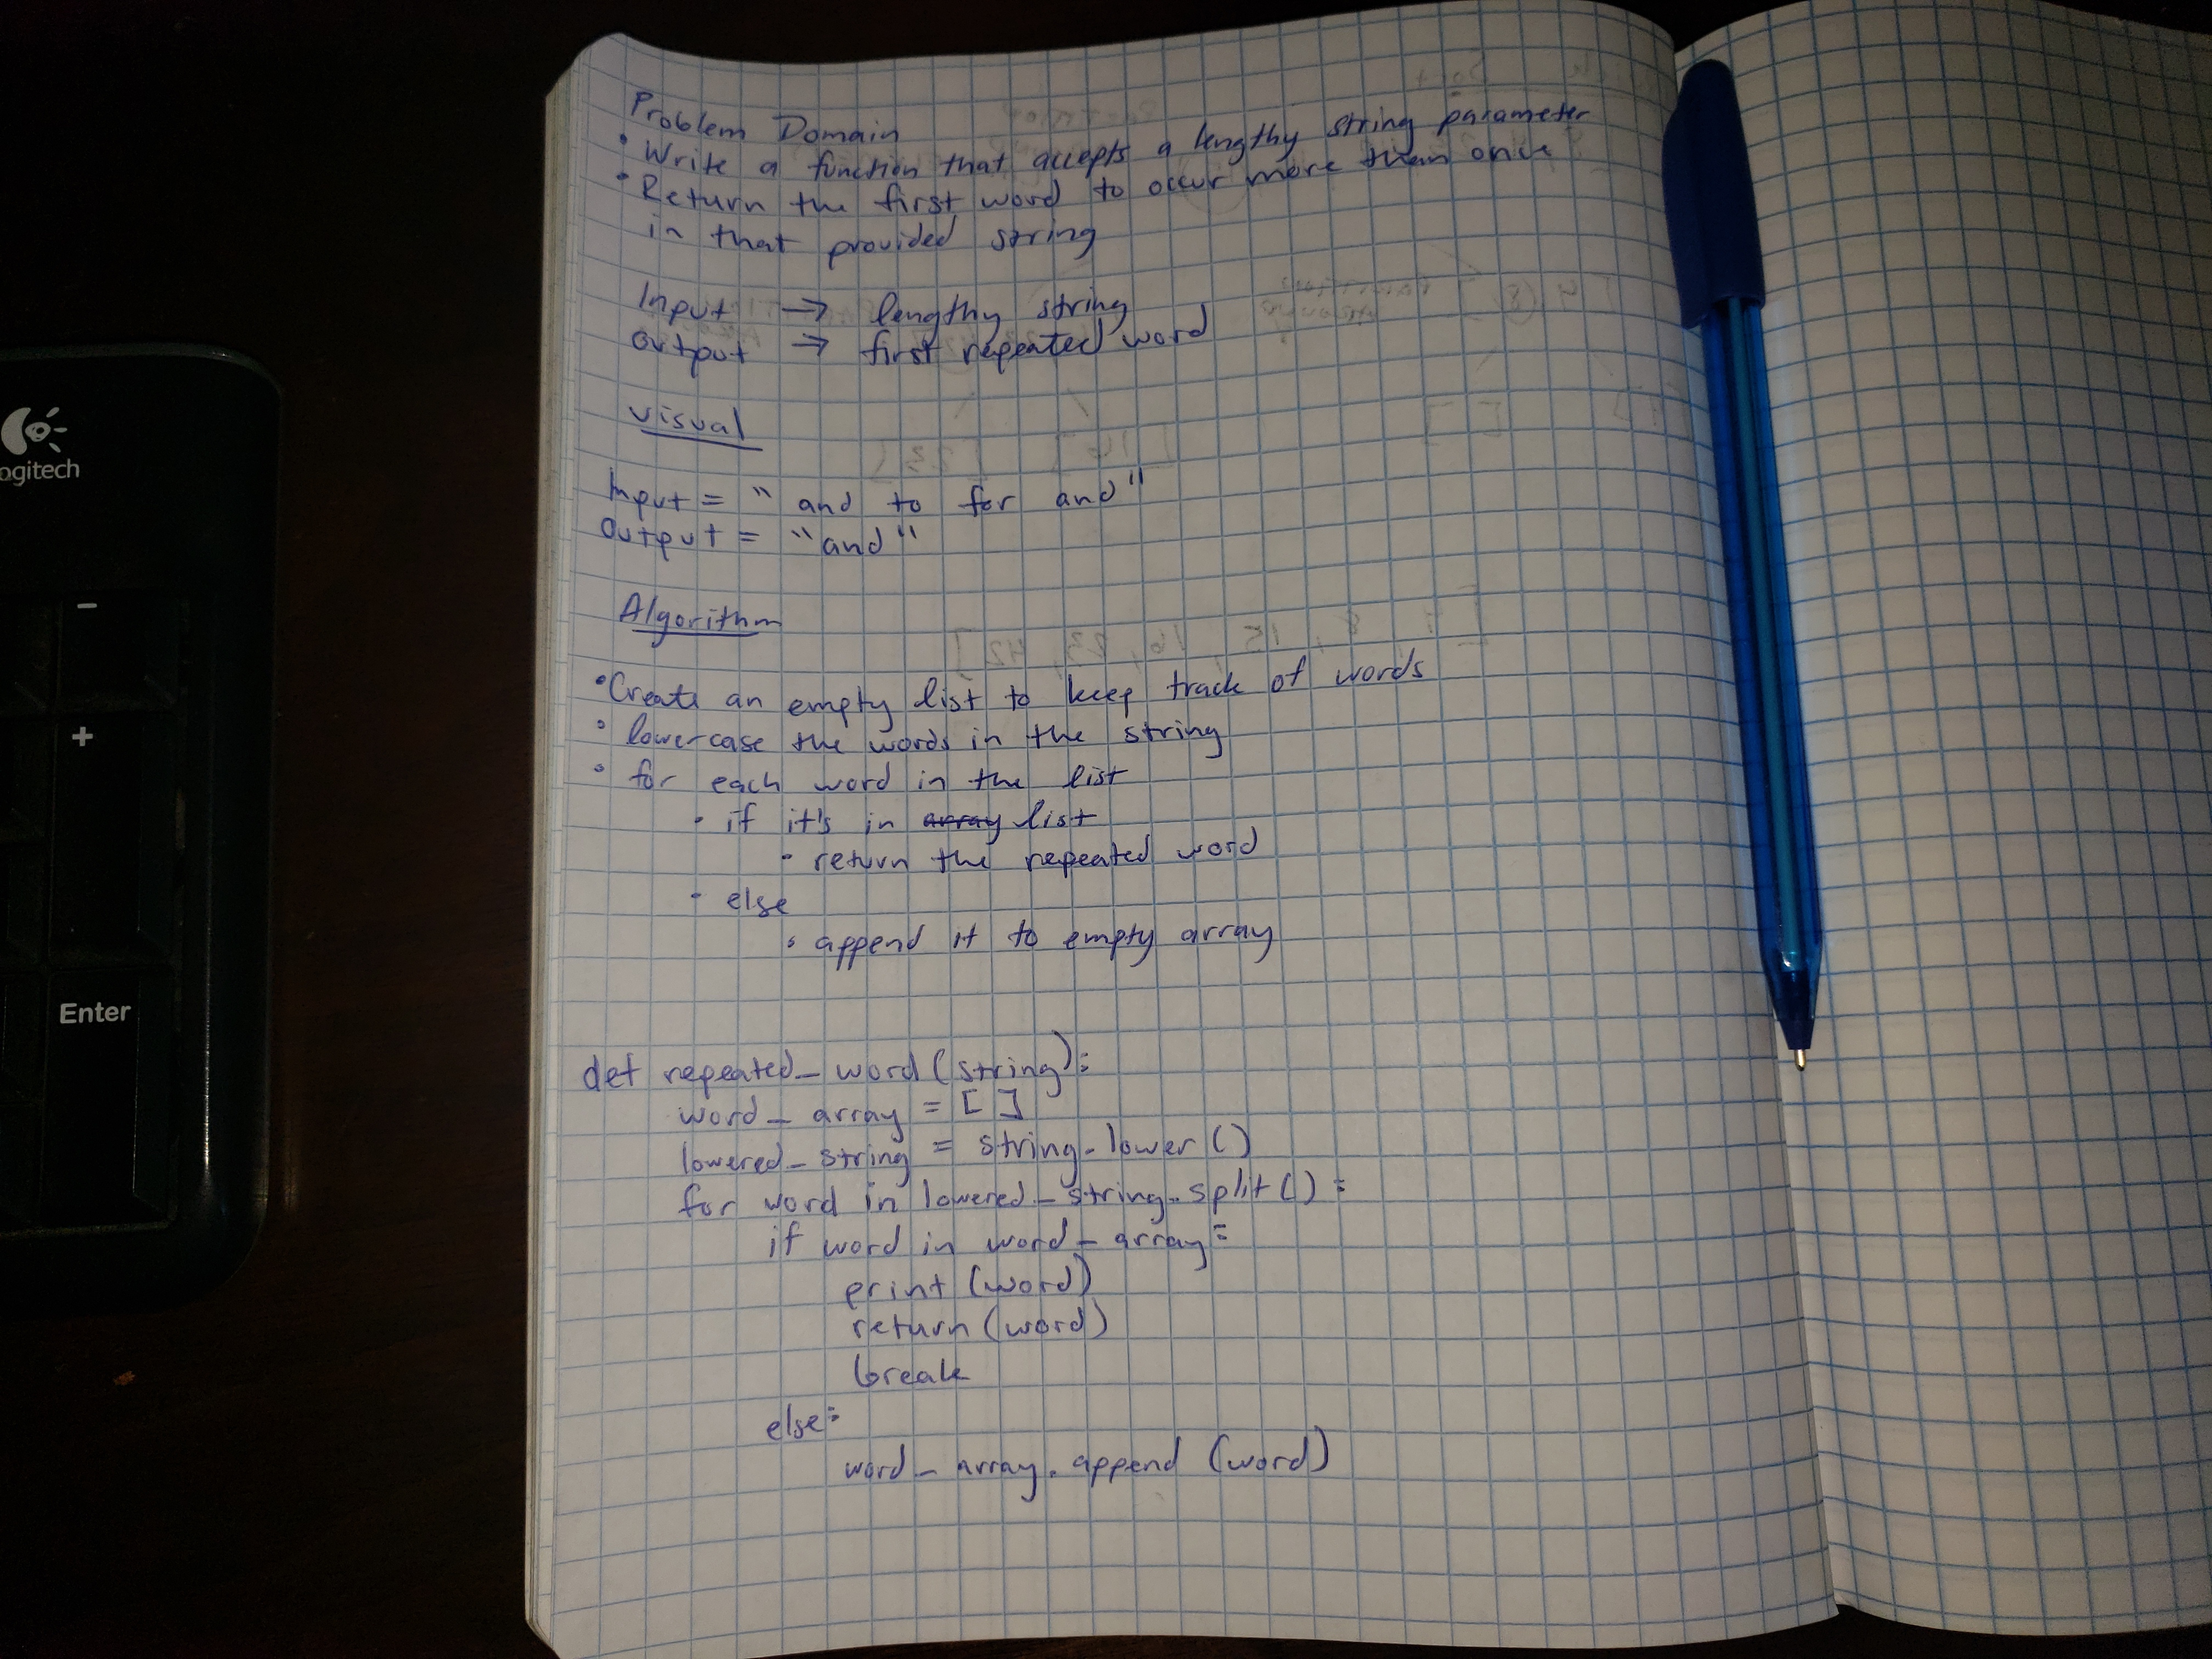 Problem Domain
• Write a function that accepts a lengthy string parameter
• Return the first word to occur more than once
in that provided string
Input → lengthy string
output → first repeated word
Visual
Input = "and to for and"
Output = "and"
Algorithm
• Create an empty list to keep track of words
• lowercase the words in the string
• for each word in the list
• if it's in array list
• return the repeated word
• else
• append it to empty array
def repeated_word(string):
word_array = []
lowered_string = string.lower()
for word in lowered_string.split():
if word in word_array:
print(word)
return(word)
break
else:
word_array.append(word)
ogitech
-
+
Enter